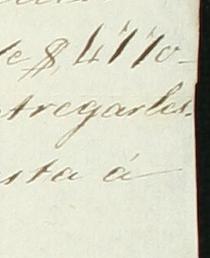 de $ 4770-
ntregarles.
sta á